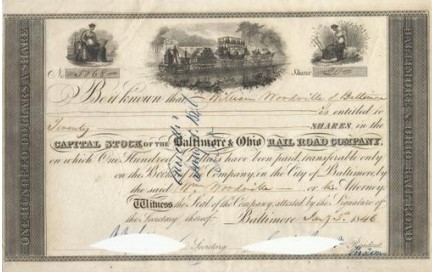 No. 5068 Shares 20
Be it known that William Woodville of Baltimore
is entitled to
Twenty SHARES, in the
CAPITAL STOCK OF THE Baltimore & Ohio RAIL ROAD COMPANY,
on which One Hundred Dollars have been paid, transferable only
on the Books of the Company, in the City of Baltimore, by
the said Wm. Woodville or his Attorney.
Witness the Seal of the Company, attested by the Signature of
the Secretary thereof. Baltimore 1846
Secretary President
ONE HUNDRED DOLLARS A SHARE